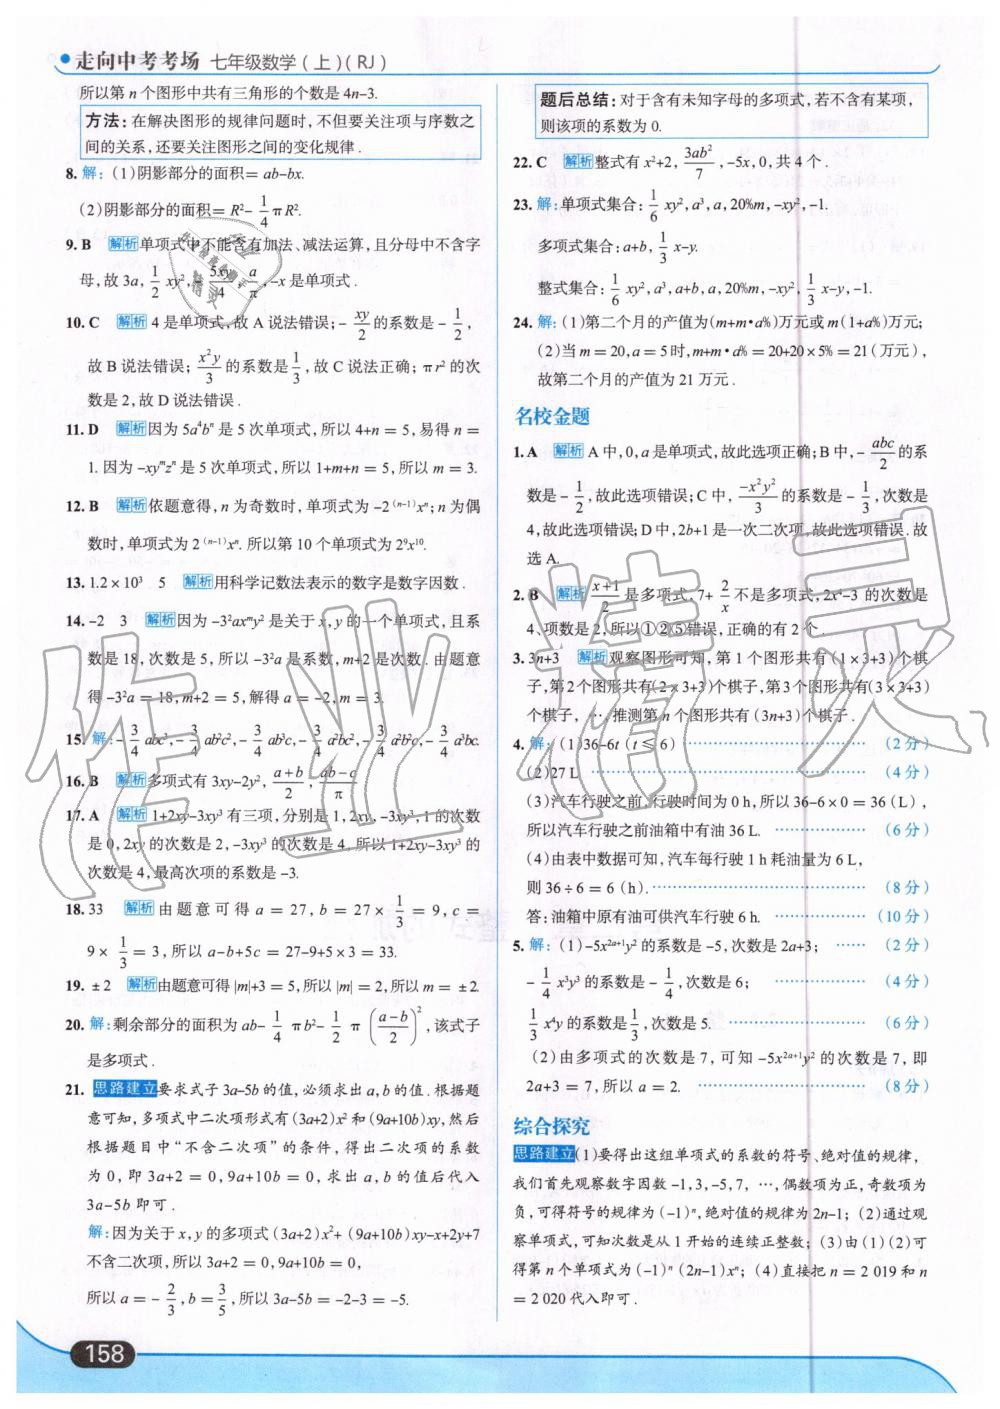 走向中考考场 七年级数学(上)(RJ)
所以第 n 个图形中共有三角形的个数是 4n-3.
方法:在解决图形的规律问题时,不但要关注项与序数之
间的关系,还要关注图形之间的变化规律.
8. 解:(1)阴影部分的面积= ab-bx.
(2)阴影部分的面积= R²-1/4 πR².
9. B 解析 单项式中不能含有加法、减法运算,且分母中不含字
母,故 3a, 1/2 xy², -5xy/4, a/π, -x 是单项式.
10. C 解析 4 是单项式,故 A 说法错误;-xy/2 的系数是 -1/2,
故 B 说法错误;x²y/3 的系数是 1/3,故 C 说法正确;πr² 的次
数是 2,故 D 说法错误.
11. D 解析 因为 5a⁴bⁿ 是 5 次单项式,所以 4+n = 5,易得 n =
1. 因为 -xyᵐzⁿ 是 5 次单项式,所以 1+m+n = 5,所以 m = 3.
12. B 解析 依题意得,n 为奇数时,单项式为 -2⁽ⁿ⁻¹⁾xⁿ;n 为偶
数时,单项式为 2⁽ⁿ⁻¹⁾xⁿ. 所以第 10 个单项式为 2⁹x¹⁰.
13. 1.2×10³ 5 解析 用科学记数法表示的数字是数字因数.
14. -2 3 解析 因为 -3²axᵐy² 是关于 x,y 的一个单项式,且系
数是 18,次数是 5,所以 -3²a 是系数,m+2 是次数. 由题意
得 -3²a = 18,m+2 = 5,解得 a = -2,m = 3.
15. 解:-3/4 abc³,-3/4 ab²c²,-3/4 ab³c,-3/4 a²bc²,-3/4 a²b²c,-3/4 a³bc.
16. B 解析 多项式有 3xy-2y², a+b/2, ab-c/π.
17. A 解析 1+2xy-3xy³ 有三项,分别是 1,2xy,-3xy³,1 的次数
是 0,2xy 的次数是 2,-3xy³ 的次数是 4. 所以 1+2xy-3xy³ 的
次数是 4,最高次项的系数是 -3.
18. 33 解析 由题意可得 a = 27,b = 27×1/3 = 9,c =
9×1/3 = 3,所以 a-b+5c = 27-9+5×3 = 33.
19. ±2 解析 由题意可得 |m|+3 = 5,所以 |m| = 2,所以 m = ±2.
20. 解:剩余部分的面积为 ab-1/4 πb²-1/2 π(a-b/2)²,该式子
是多项式.
21. 思路建立 要求式子 3a-5b 的值,必须求出 a,b 的值. 根据题
意可知,多项式中二次项形式有(3a+2)x² 和(9a+10b)xy,然后
根据题目中“不含二次项”的条件,得出二次项的系数
为 0,即 3a+2 = 0,9a+10b = 0,求出 a,b 的值后代入
3a-5b 即可.
解:因为关于 x,y 的多项式(3a+2)x²+(9a+10b)xy-x+2y+7
不含二次项,所以 3a+2 = 0,9a+10b = 0,
所以 a = -2/3,b = 3/5,所以 3a-5b = -2-3 = -5.
题后总结:对于含有未知字母的多项式,若不含有某项,
则该项的系数为 0.
22. C 解析 整式有 x²+2, 3ab²/7, -5x,0,共 4 个.
23. 解:单项式集合:1/6 xy²,a³,a,20%m,-xy²,-1.
多项式集合:a+b,1/3 x-y.
整式集合:1/6 xy²,a³,a+b,a,20%m,-xy²,1/3 x-y,-1.
24. 解:(1)第二个月的产值为(m+m•a%)万元或 m(1+a%)万元;
(2)当 m = 20,a = 5 时,m+m•a% = 20+20×5% = 21(万元),
故第二个月的产值为 21 万元.
名校金题
1. A 解析 A 中,0,a 是单项式,故此选项正确;B 中,-abc/2 的系
数是 -1/2,故此选项错误;C 中,-x²y²/3 的系数是 -1/3,次数是
4,故此选项错误;D 中,2b+1 是一次二次项,故此选项错误. 故
选 A.
2. B 解析 x+1/2 是多项式,7+2/x 不是多项式,2x⁴-3 的次数是
4、项数是 2,所以①②⑤错误,正确的有 2 个.
3. 3n+3 解析 观察图形可知,第 1 个图形共有(1×3+3)个棋
子,第 2 个图形共有(2×3+3)个棋子,第 3 个图形共有(3×3+3)
个棋子,…,推测第 n 个图形共有(3n+3)个棋子.
4. 解:(1)36-6t(t≤6) (2分)
(2)27 L. (4分)
(3)汽车行驶之前,行驶时间为 0 h,所以 36-6×0 = 36(L),
所以汽车行驶之前油箱中有油 36 L. (6分)
(4)由表中数据可知,汽车每行驶 1 h 耗油量为 6 L,
则 36÷6 = 6(h). (8分)
答:油箱中原有油可供汽车行驶 6 h. (10分)
5. 解:(1)-5x²ᵃ⁺¹y² 的系数是 -5,次数是 2a+3; (2分)
-1/4 x³y³ 的系数是 -1/4,次数是 6; (4分)
1/3 x⁴y 的系数是 1/3,次数是 5. (6分)
(2)由多项式的次数是 7,可知 -5x²ᵃ⁺¹y² 的次数是 7,即
2a+3 = 7,所以 a = 2. (8分)
综合探究
思路建立 (1)要得出这组单项式的系数的符号、绝对值的规律,
我们首先观察数字因数 -1,3,-5,7,…,偶数项为正,奇数项为
负,可得符号的规律为(-1)ⁿ,绝对值的规律为 2n-1;(2)通过观
察单项式,可知次数是从 1 开始的连续正整数;(3)由(1)(2)可
得第 n 个单项式为(-1)ⁿ(2n-1)xⁿ;(4)直接把 n = 2 019 和 n
= 2 020 代入即可.
158
作业精灵